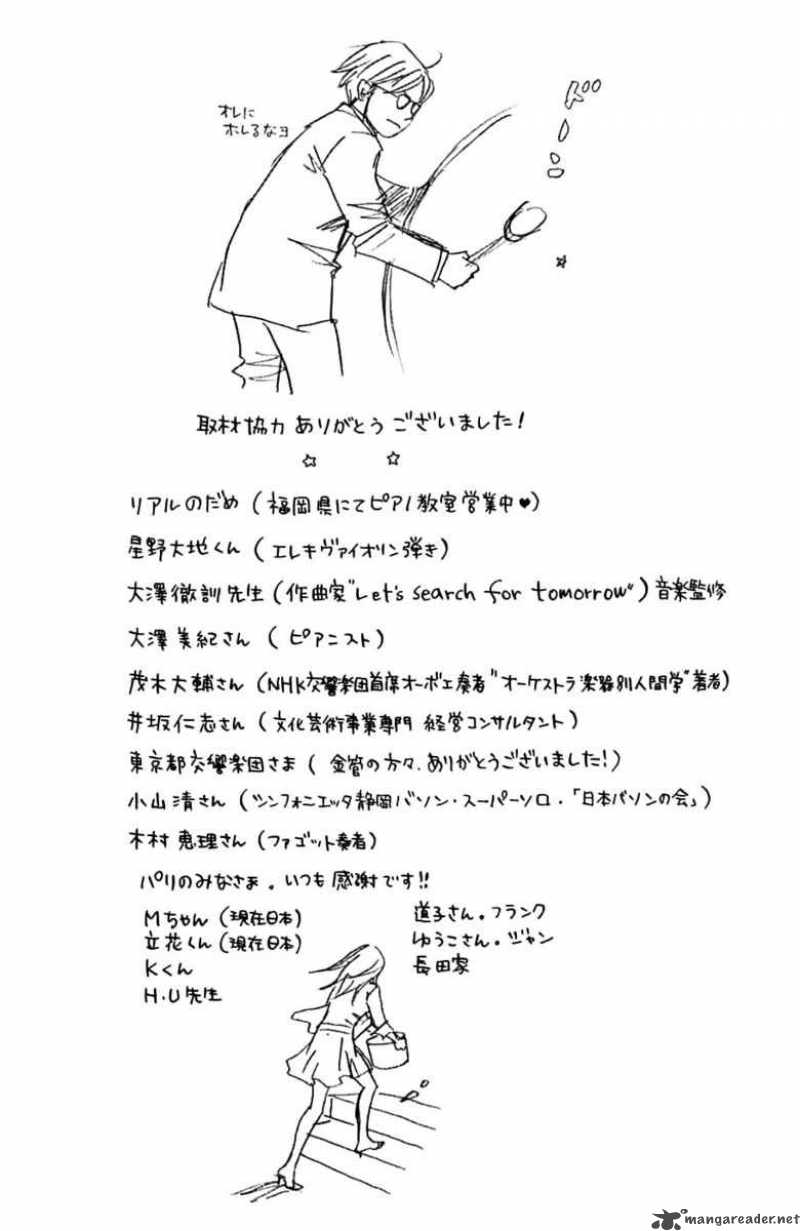 オレに
ホレるなヨ
ドーン
取材協力ありがとうございました!
リアルのだめ(福岡県にてピアノ教室営業中♥)
星野大地くん(エレキヴァイオリン弾き)
大澤徹訓先生(作曲家"Let's search for tomorrow")音楽監修
大澤美紀さん(ピアニスト)
茂木大輔さん(NHK交響楽団首席オーボエ奏者"オーケストラ楽器別人間学"著者)
井坂仁志さん(文化芸術事業専門 経営コンサルタント)
東京都交響楽団さま(金管の方々、ありがとうございました!)
小山清さん(シンフォニエッタ静岡バソン・スーパーソロ・「日本バソンの会」)
木村恵理さん(ファゴット奏者)
パリのみなさま。いつも感謝です!!
Mちゃん(現在日本)
立花くん(現在日本)
Kくん
H.U先生
道子さん。フランク
ゆうこさん。ジャン
長田家
mangareader.net